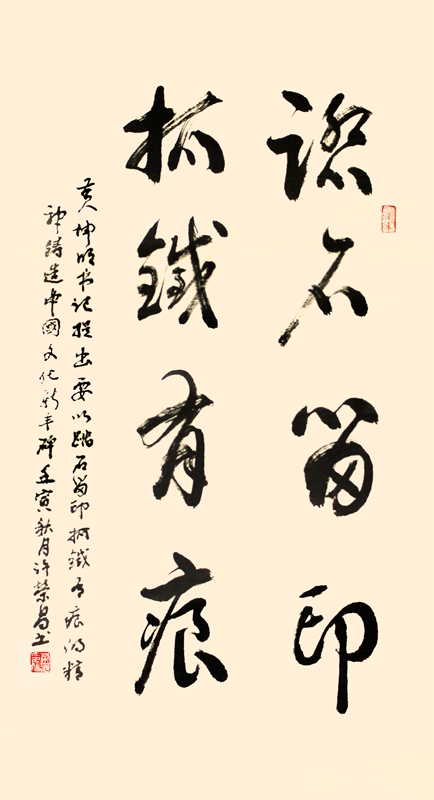 踏石留印
抓鐵有痕
黄坤明书记提出要以踏石留印抓鐵有痕的精
神鑄造中國文化新丰碑壬寅秋月许榮昌书